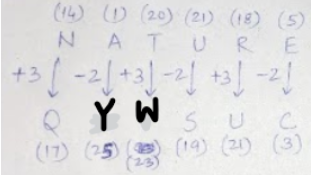 (14) (1) (20) (21) (18) (5)
N A T U R E
+3 -2 +3 -2 +3 -2
Q Y W S U C
(17) (25) (19) (21) (3)
(23)